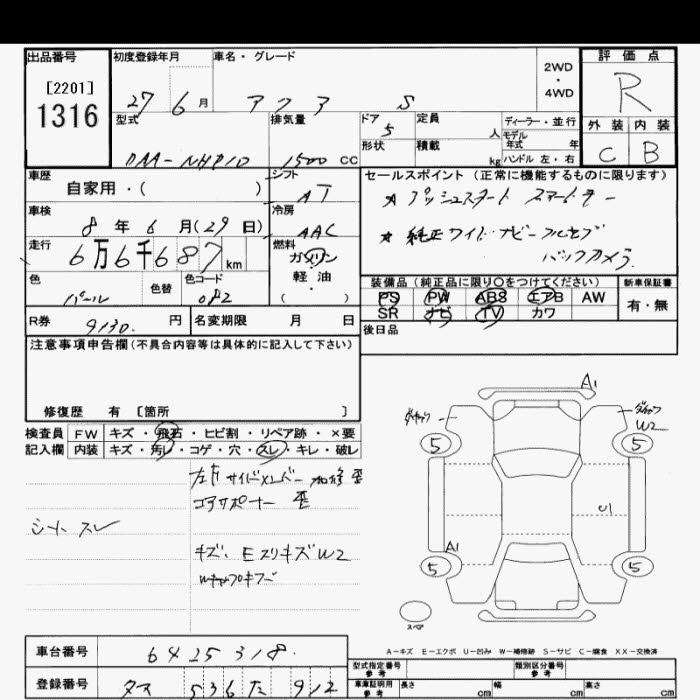 出品番号
[2201]
1316
初度登録年月
27 6 月
車名・グレード
アクア S
2WD
・
4WD
評価点
R
型式
DAA-NHP10
排気量
1500 CC
ドア
5
定員
人
形状
積載
kg
ディーラー・並行
モデル
年式 年
ハンドル 左・右
外装 内装
C B
車歴
自家用・( )
シフト
AT
セールスポイント(正常に機能するものに限ります)
★ プッシュスタート スマートキー
★ 純正ワイドナビーフルセグ
バックカメラ
車検
8 年 6 月(29 日)
冷房
AAC
走行
6万6千687 km
燃料
ガソリン
軽・油
( )
色
パール
色替
色コード
装備品(純正品に限り○をつけてください)
新車保証書
PS PW ABS エアB AW
SR ナビ TV カワ
有・無
R券
9130. 円
名変期限 月 日
後日品
注意事項申告欄(不具合内容等は具体的に記入して下さい)
修復歴 有 [箇所 ]
検査員
記入欄
FW キズ・飛石・ヒビ割・リペア跡・×要
内装 キズ・汚レ・コゲ・穴・スレ・キレ・破レ
左前サイドメンバー 補修 歪
コアサポート 歪
シート スレ
キズ、EスリキズW2
A1
W2
5
5
U1
A1
5
5
スペア
A-キズ E-エクボ U-凹み W-補修跡 S-サビ C-腐食 XX-交換済
車台番号
6425318.
登録番号
536 た 912
型式指定番号
参考
類別区分番号
参考
車庫証明用
参考
長さ cm
幅 cm
高さ cm